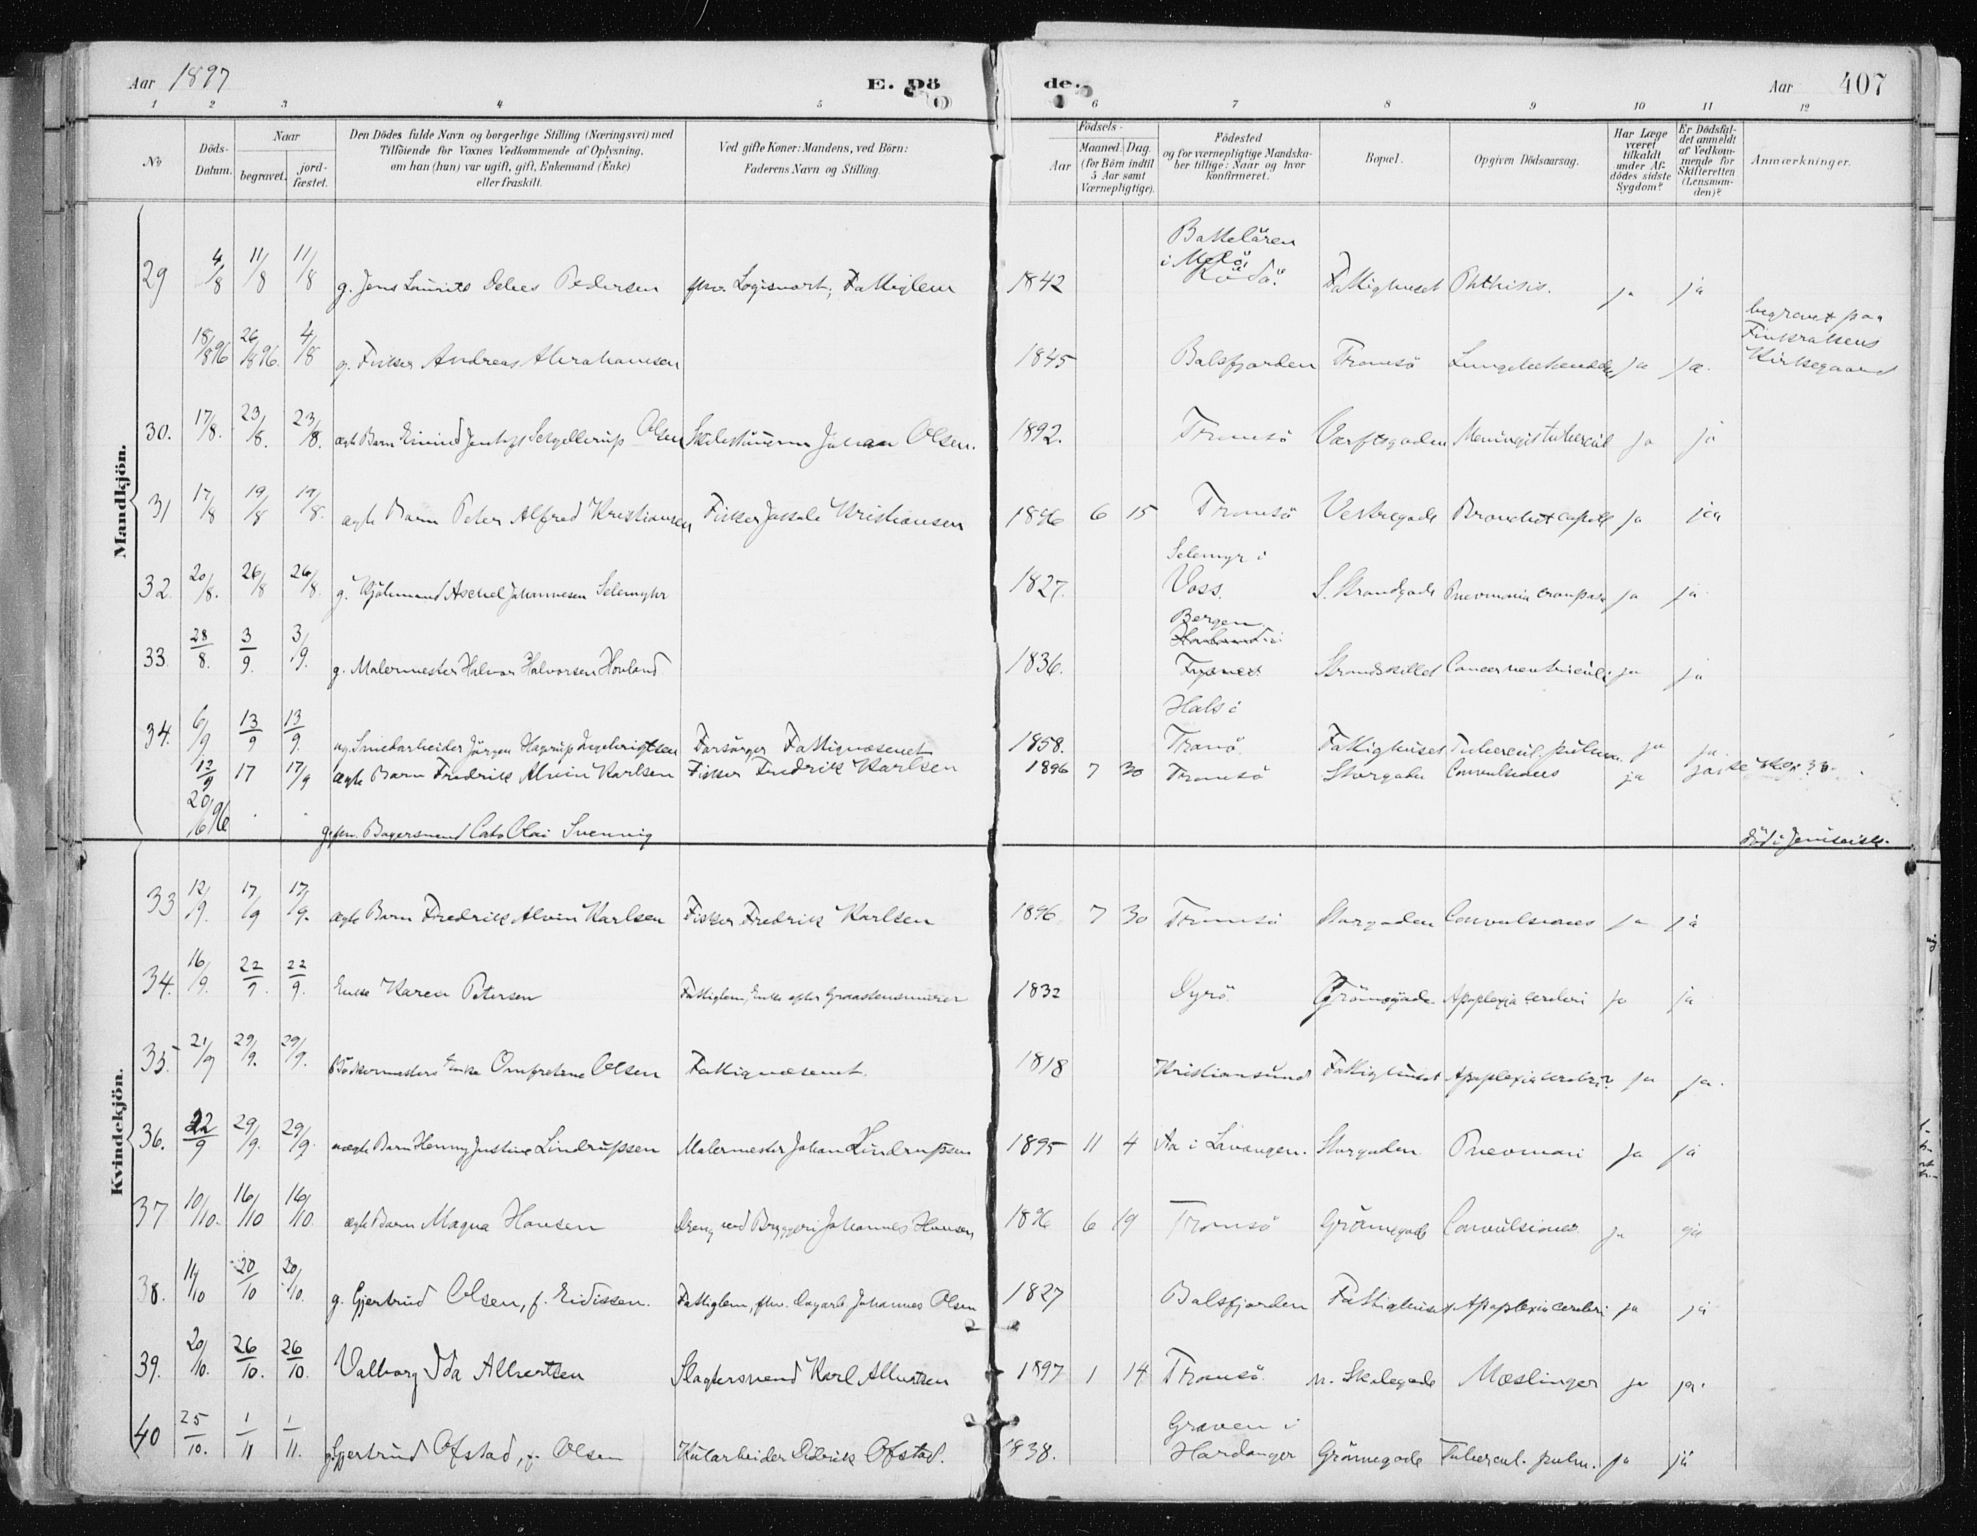 Aar 1897 E. Döde. Aar 407
1 2 3 4 5 6 7 8 9 10 11 12
No Döds-Datum. Naar begravet. jordfæstet. Den Dödes fulde Navn og borgerlige Stilling (Næringsvei) med Tilföiende for Voxnes Vedkommende af Oplysning, om han (hun) var ugift, gift, Enkemand (Enke) eller fraskilt. Ved gifte Koner: Mandens, ved Börn: Faderens Navn og Stilling. Födsels- Aar Maaned. Dag. (for Börn indtil 5 Aar samt Værnepligtige). Födested og for værnepligtige Mandskaber tillige: Naar og hvor konfirmeret. Bopæl. Opgiven Dödsaarsag. Har Læge været tilkaldt under Afdödes sidste Sygdom? Er Dödsfaldet anmeldt af Vedkommende for Skifteretten (Lensmanden)? Anmærkninger.
Mandkjön.
29 4/8 11/8 11/8 g. Jens Laurits Pedersen fhv. Logisvært, Fattiglem 1842 i Melö, Rödö. Fattighuset Phthisis. ja ja
18/8 96 26/8 96. 4/8 g. Fisker Andreas Abrahamsen 1845 Balsfjorden Tromsö ja ja. begravet paa Finkrakens Kirkegaard
30. 17/8. 23/8. 23/8. ægte Barn Eivind Schjelderup Olsen Johan Olsen. 1892. Tromsö Værftsgaden Meningit tubercul ja ja
31 17/8 19/8 19/8. ægte Barn Peter Alfred Kristiansen Fisker Kristiansen 1896 6 15 Tromsö Vestregade Bronchit capill ja ja
32. 20/8. 26/8 26/8. g. Johannesen Selemyhr 1827. Selemyr i Voss. S. Strandgade Pnevmonia crouposa ja ja
33. 28/8. 3/9. 3/9. g. Malermester Halvor Halvorsen Hovland 1836. Bergen Strandskillet Cancer ventriculi ja ja
34. 6/9 13/9 13/9. ug. Smedarbeider Jörgen Hagerup Ingebrigtsen Forsörger Fattigvæsenet 1858. Hals i Tranö. Fattighuset Tubercul. pulmon. ja ja.
12/9 17 17/9 ægte Barn Fredrik Alvin Karlsen Fisker Fredrik Karlsen 1896 7 30 Tromsö Storgaden Convulsiones ja ja
20/6 96 g. fhv. Bagersvend Cato Olai Svenvig död i Jeniseisk.
Kvindekjön.
33 12/9. 17/9 17/9. ægte Barn Fredrik Alvin Karlsen Fisker Fredrik Karlsen 1896 7 30 Tromsö Storgaden Convulsiones ja ja
34. 16/9. 22/9. 22/9. Enke Karen Petersen Fattiglem, Enke efter Graastensmurer 1832 Dyrö. Grönnegade Apoplexia cerebri ja ja
35. 21/9 29/9. 29/9. Bödkermesters Enke Olsen Fattigvæsenet. 1818 Kristiansund Fattighuset Apoplexia cerebri ja ja.
36. 22/9 29/9. 29/9. uægte Barn Henny Justine Lindrupsen Malermester Johan Lindrupsen 1895 11 4 Aa i Lavangen. Storgaden Pnevmoni ja ja
37 10/10. 16/10 16/10. ægte Barn Magna Hansen Dreng ved Bryggeri Johannes Hansen 1896 6 19 Tromsö Grönnegade Convulsiones ja ja
38. 11/10 20/10 20/10. g. Gjertrud Olsen, f. Eidissen. Fattiglem, fhv. Dagarb. Johannes Olsen 1827 Balsfjorden Fattighuset Apoplexia cerebri ja ja
39. 20/10. 26/10. 26/10. Valborg Ida Albertsen Slagtersvend Karl Albertsen 1897 1 14 Tromsö n. Skolegade Mæslinger ja ja
40 25/10. 1/11 1/11. g. Gjertrud Ofstad, f. Olsen Kularbeider Didrik Ofstad. 1838. Graven i Hardanger Grönnegade Tubercul. pulm. ja ja